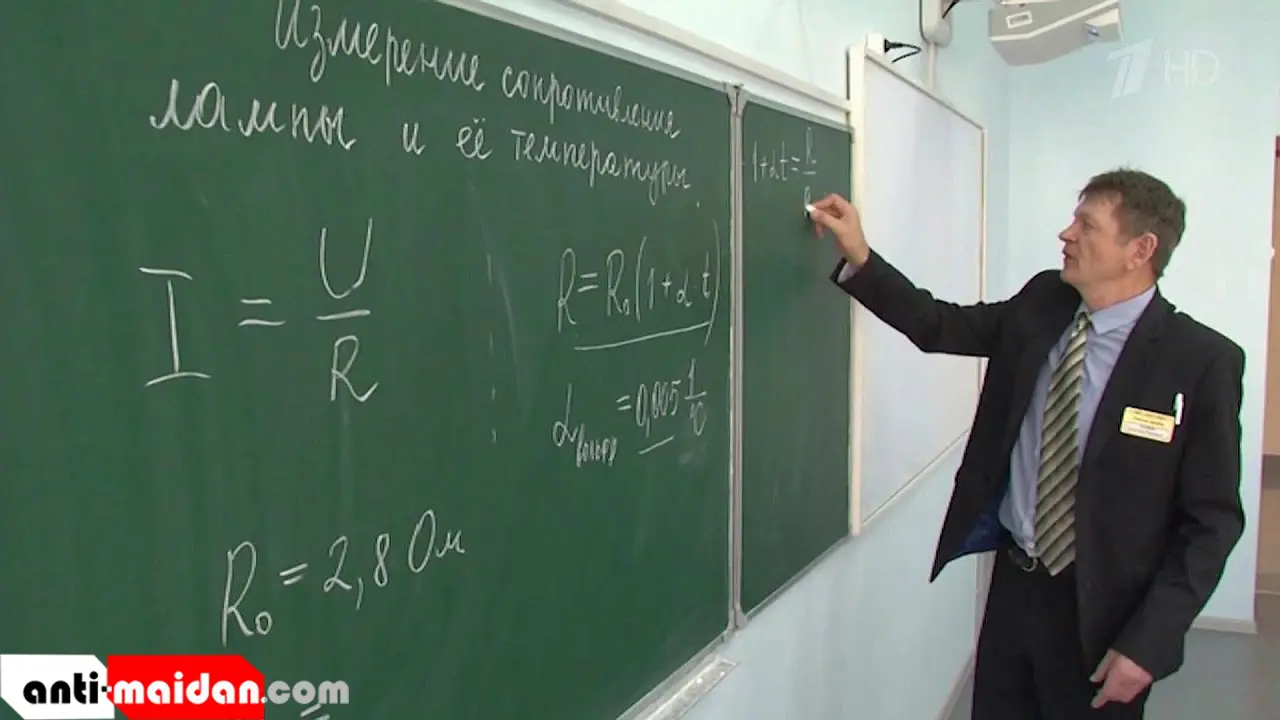 Измерение сопротивления
лампы и её температуры.
I = U/R
R = R₀(1 + α t)
α = 0,005 1/°C
R₀ = 2,8 Ом
=
1 + α t = R/R
1 HD
anti-maidan.com